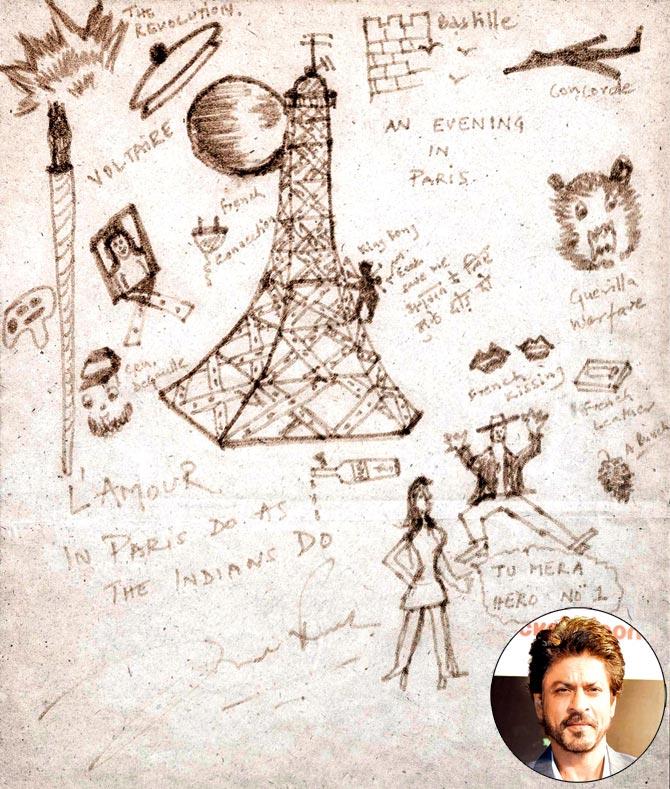 THE
REVOLUTION.
Bastille
Concorde
VOLTAIRE
AN EVENING
IN
PARIS
French
Connection
King Kong
Guerilla
Warfare
French
Kissing
French
Leather
L'AMOUR
IN PARIS DO AS
THE INDIANS DO
TU MERA
HERO NO 1